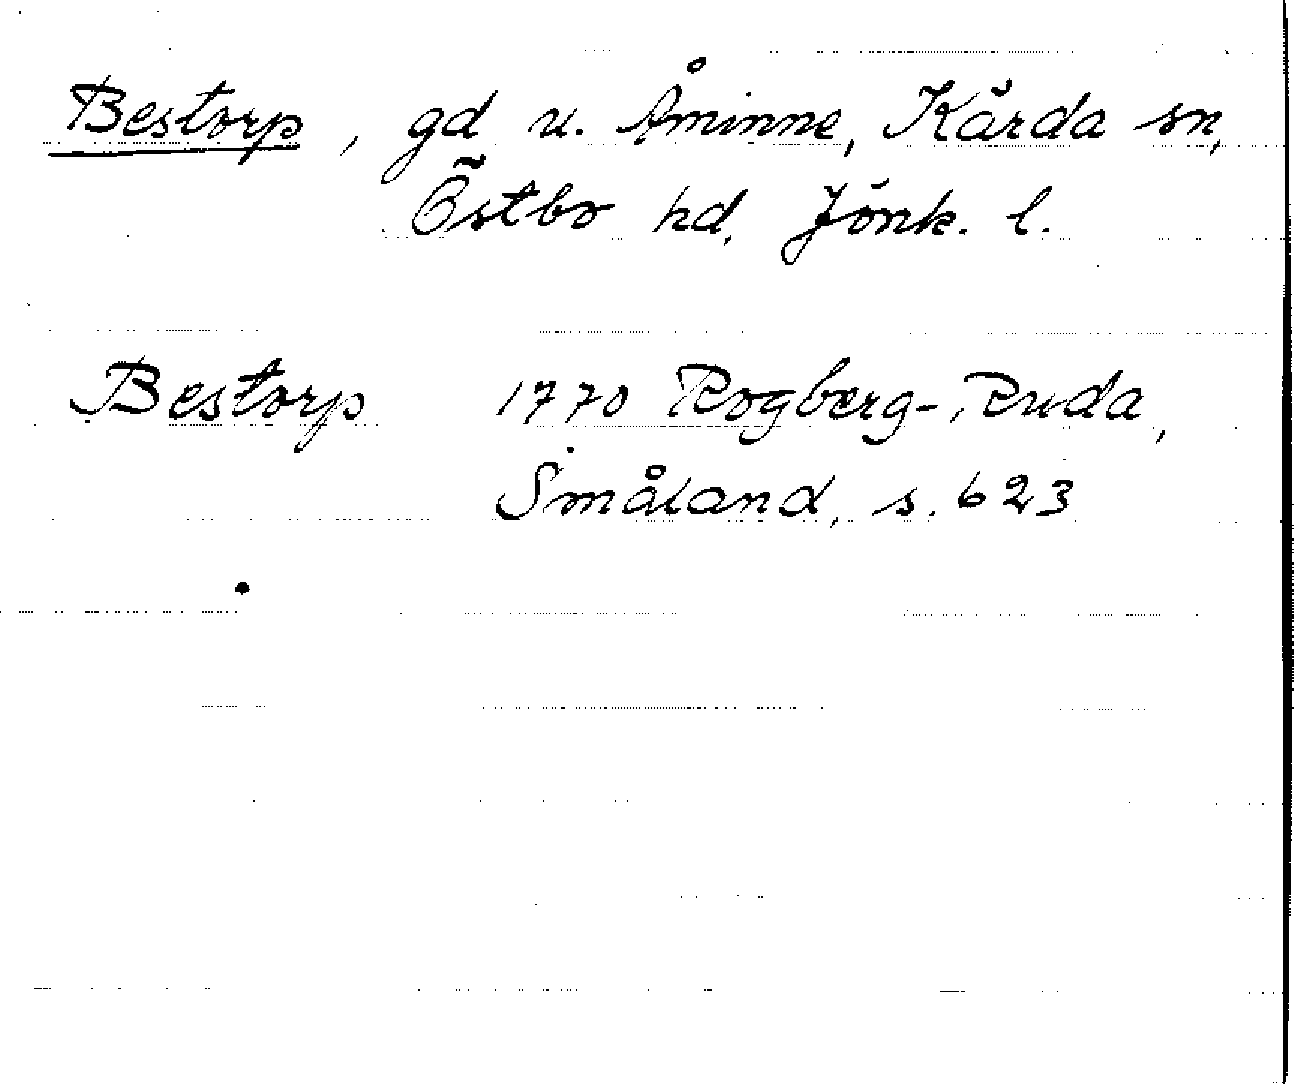 Bestorp, gd u. Åminne, Kärda sn,
Östbo hd, Jönk. l.
Bestorp 1770 Rogberg-Ruda,
Småland, s. 623